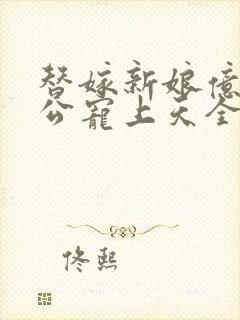 替嫁新娘亿
公宠上天全
佟熙